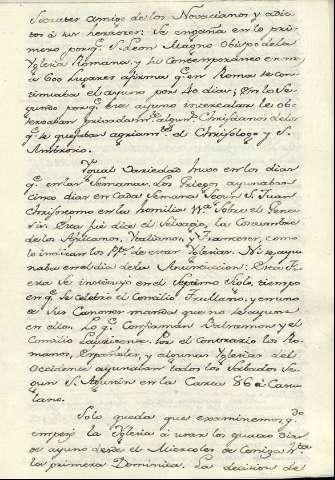 Socrates amigo de los Novacianos y adic-
tos à sus herrores: Se engaña en lo pri-
mero porq.e S. Leon Magno Obispo de la
Yglesia Romana, y su Contemporaneo en mas
de 600 lugares afirma q.e en Roma se con-
tinuaba el ayuno por 40 dias; En lo Se-
gundo porq.e era ayuno intercalar le ob-
servaban privadam.te algun.s Christianos de lo
q.e se quejaban agriam.te el Chrisologo y S.
Ambrosio.
Ygual variedad huvo en los dias
q.e en las Semanas. Los Griegos ayunaban
cinco dias en cada Semana Segun S. Juan
Chrisostomo en la homilia sobre el Gene-
sis. Esta fue dice el la Costumbre
de los Africanos, Ytalianos, y Franceses, como
lo indican los PP. de estas Yglesias. Ni se ayu-
naba en el dia de la Anunciacion: Esta Fi-
esta Se instituyo en el Septimo Siglo, tiempo
en q.e Se celebrò el Concilio Trullano, y en uno
de sus Canones manda que no se ayune
en ella. Lo q.e Confirman Balsamon y el
Concilio. Por el Contrario los Ro-
manos, Españoles, y algunas Yglesias del
Occidente ayunaban todos los Sabados Se-
gun S. Agustin en la Carta 86 à Casu-
lano.
Solo queda que examinemos q.do
empezò la Yglesia à usar los quatro dias
de ayuno desde el Miercoles de Ceniza h.ta
la primera Dominica. La decision de